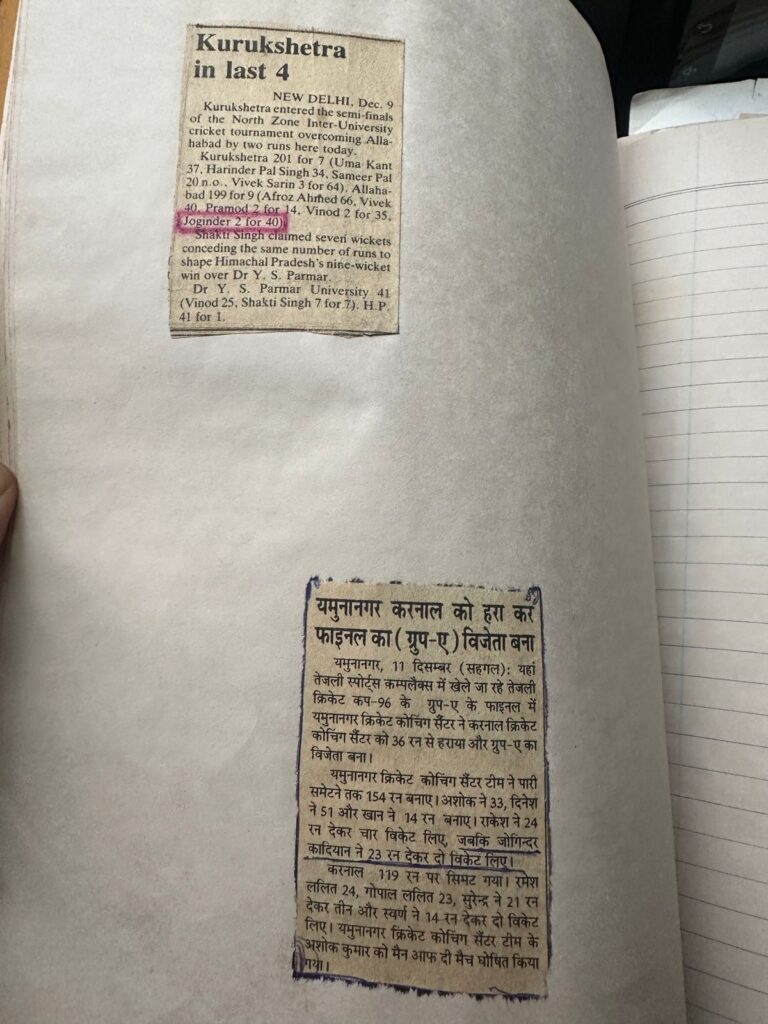 Kurukshetra
in last 4
NEW DELHI, Dec. 9
Kurukshetra entered the semi-finals
of the North Zone Inter-University
cricket tournament overcoming Alla-
habad by two runs here today.
Kurukshetra 201 for 7 (Uma Kant
37, Harinder Pal Singh 34, Sameer Pal
20 n.o., Vivek Sarin 3 for 64). Allaha-
bad 199 for 9 (Afroz Ahmed 66, Vivek
40, Pramod 2 for 14, Vinod 2 for 35,
Joginder 2 for 40)
Shakti Singh claimed seven wickets
conceding the same number of runs to
shape Himachal Pradesh's nine-wicket
win over Dr Y. S. Parmar.
Dr Y. S. Parmar University 41
(Vinod 25, Shakti Singh 7 for 7). H.P.
41 for 1.
यमुनानगर करनाल को हरा कर
फाइनल का ( ग्रुप-ए ) विजेता बना
यमुनानगर, 11 दिसम्बर (सहगल): यहां
तेजली स्पोर्ट्स कम्पलैक्स में खेले जा रहे तेजली
क्रिकेट कप-96 के ग्रुप-ए के फाइनल में
यमुनानगर क्रिकेट कोचिंग सैंटर ने करनाल क्रिकेट
कोचिंग सैंटर को 36 रन से हराया और ग्रुप-ए का
विजेता बना।
यमुनानगर क्रिकेट कोचिंग सैंटर टीम ने पारी
समेटने तक 154 रन बनाए। अशोक ने 33, दिनेश
ने 51 और खान ने 14 रन बनाए। राकेश ने 24
रन देकर चार विकेट लिए, जबकि जोगिन्दर
कादियान ने 23 रन देकर दो विकेट लिए।
करनाल 119 रन पर सिमट गया। रमेश
ललित 24, गोपाल ललित 23, सुरेन्द्र ने 21 रन
देकर तीन और स्वर्ण ने 14 रन देकर दो विकेट
लिए। यमुनानगर क्रिकेट कोचिंग सैंटर टीम के
अशोक कुमार को मैन आफ दी मैच घोषित किया
गया।